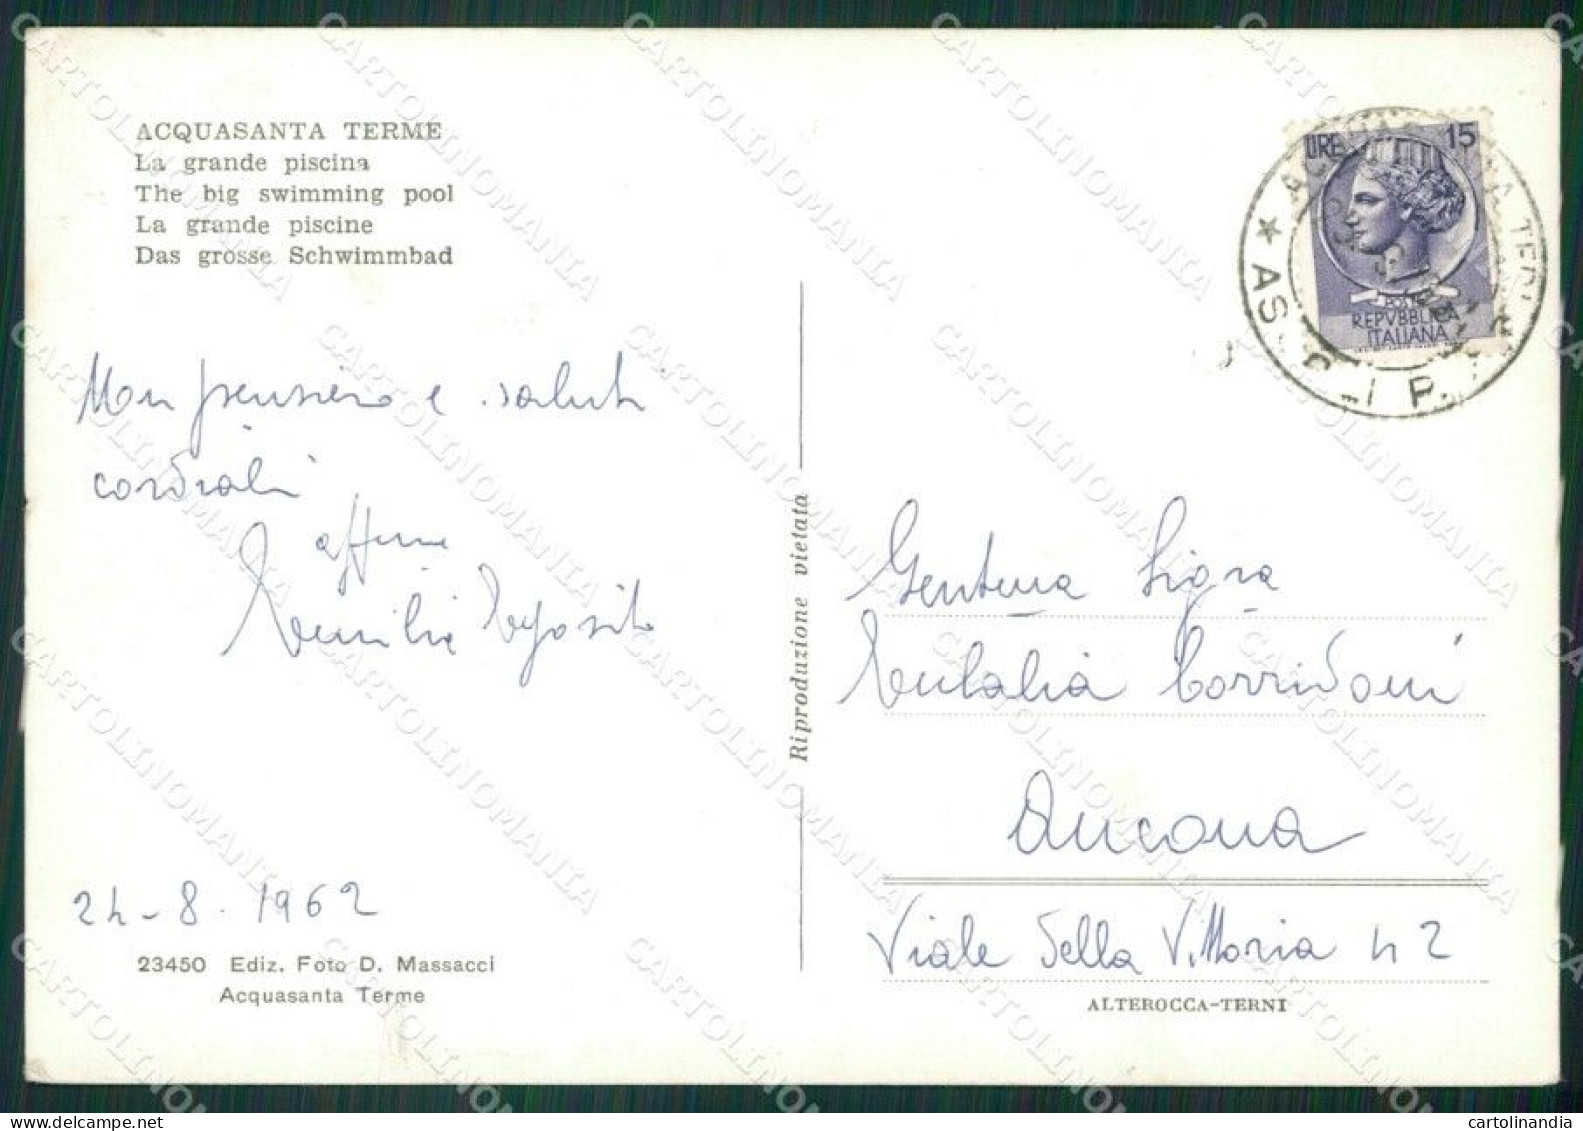 ACQUASANTA TERME
La grande piscina
The big swimming pool
La grande piscine
Das grosse Schwimmbad
LIRE 15
POSTE
REPVBBLICA
ITALIANA
pensiero e saluti
cordiali
Emilia Esposito
24-8-1962
23450 Ediz. Foto D. Massacci
Acquasanta Terme
Riproduzione vietata
Sigra
Eulalia Corridoni
Ancona
Viale della Vittoria 42
ALTEROCCA-TERNI
CARTOLINOMANIA
cartolinandia